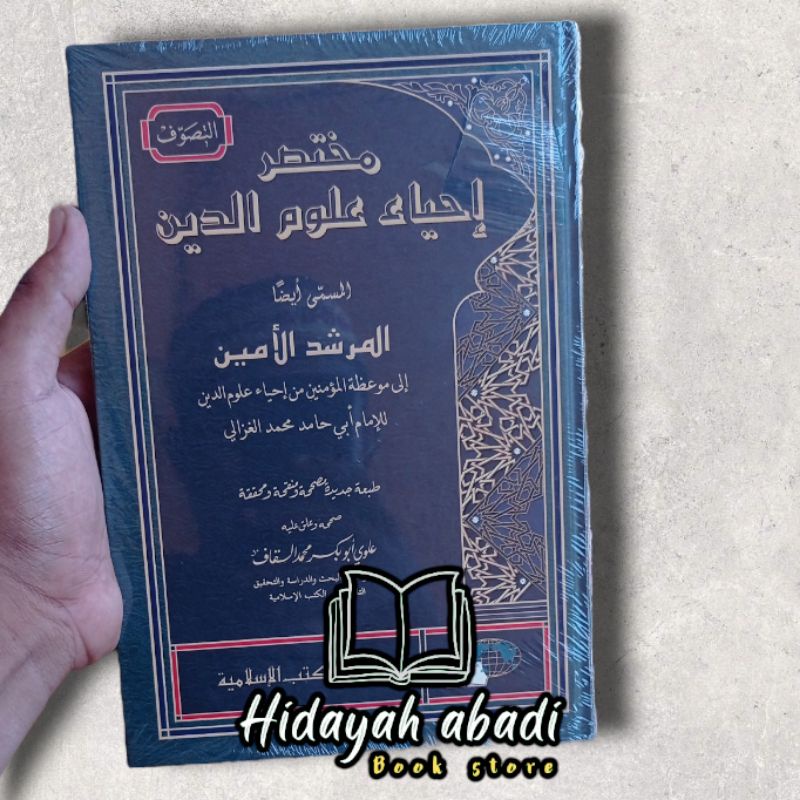 التصوّف
مختصر
إحياء علوم الدين
المسمّى أيضًا
المرشد الأمين
إلى موعظة المؤمنين من إحياء علوم الدين
للإمام أبي حامد محمد الغزالي
طبعة جديدة مصححة ومنقحة ومحققة
صححه وعلق عليه
علوي أبو بكر محمد السقاف
البحث والدراسة والتحقيق
الكتب الإسلامية
كتب الإسلامية
Hidayah abadi
Book store